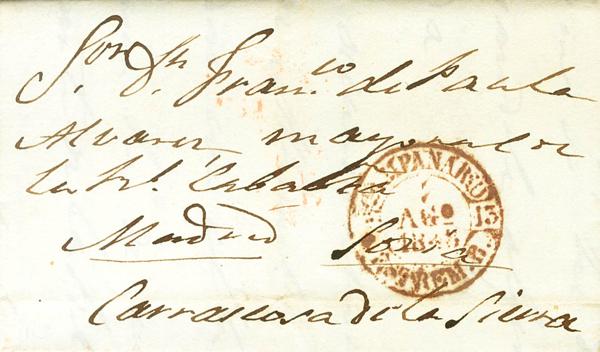 Sor. Dn. Franco. de Paula
Alvarez mayoral de
la Rl. Cabaña
Madrid Soria
Carrascosa de la Sierra
CAMPANARIO 13
7
AGO
ESTREM.